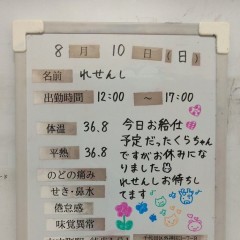 8月10日(日)
名前 れせんし
出勤時間 12:00 ～ 17:00
体温 36.8
平熱 36.8
のどの痛み
せき・鼻水
倦怠感
味覚異常
今日お給仕
予定だったくらちゃん
ですがお休みにな
りました
れせんしお待ちし
てます